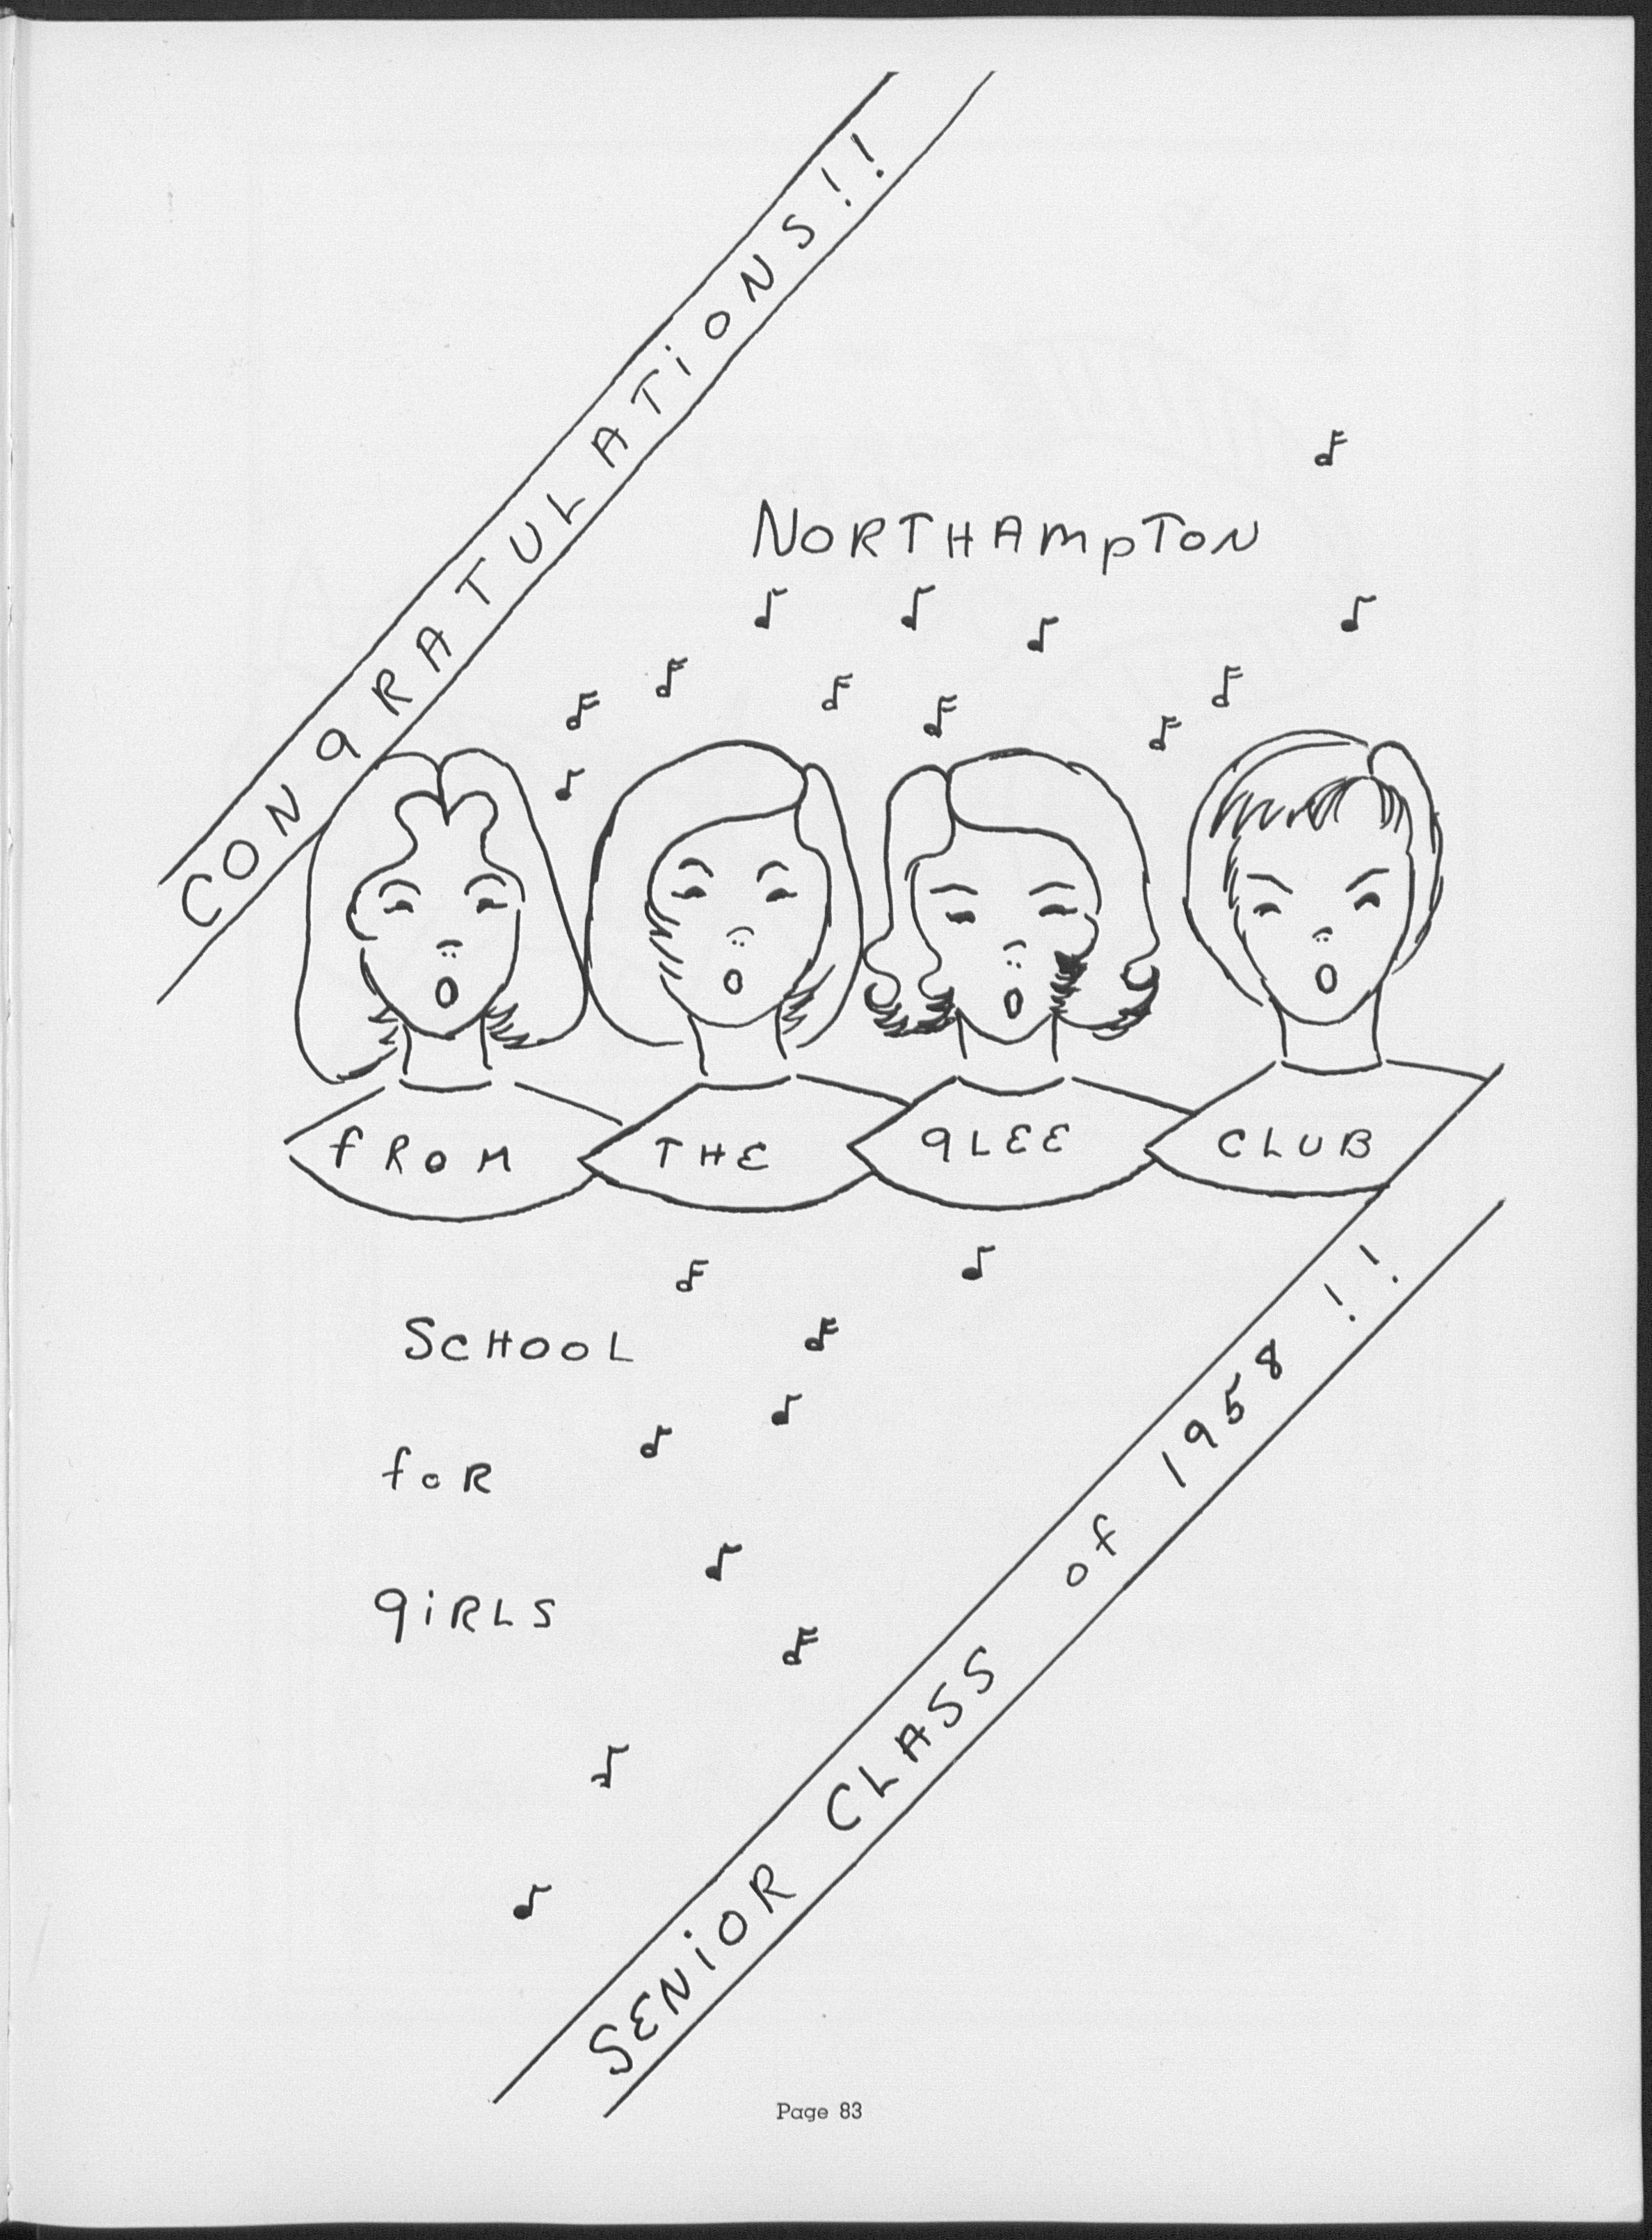 CONgRATULATiONS!!
NORTHAMpTON
fROM THE gLEE CLUB
SCHOOL
foR
giRLS
SENiOR CLASS of 1958 !!
Page 83